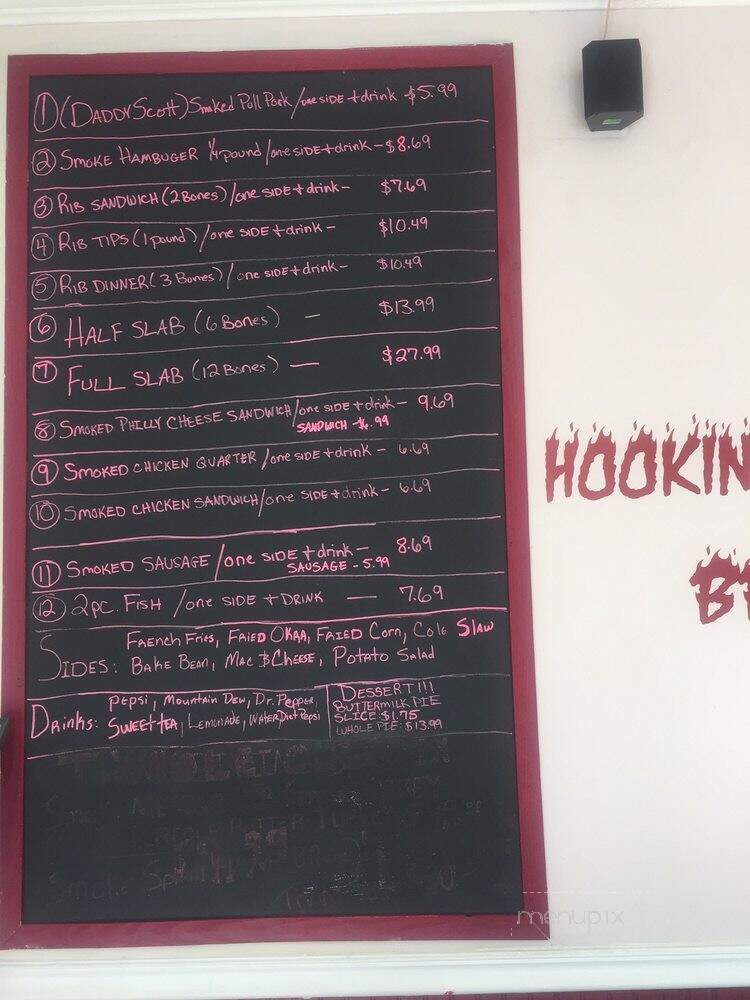 1 (DADDY SCOTT) Smoked Pull Pork / one SIDE + drink $5.99
2 SMOKE HAMBUGER 1/4 pound / one SIDE + drink - $8.69
3 RIB SANDWICH (2 Bones) / one SIDE + drink - $7.69
4 RIB TIPS (1 pound) / one SIDE + drink - $10.49
5 RIB DINNER (3 Bones) / one SIDE + drink - $10.49
6 HALF SLAB (6 Bones) - $13.99
7 FULL SLAB (12 Bones) - $27.99
8 SMOKED PHILLY CHEESE SANDWICH / one SIDE + drink - 9.69
SANDWICH - $6.99
9 SMOKED CHICKEN QUARTER / one SIDE + drink - 6.69
10 SMOKED CHICKEN SANDWICH / one SIDE + drink - 6.69
11 SMOKED SAUSAGE / one SIDE + drink - 8.69
SAUSAGE - 5.99
12 2pc. FISH / one SIDE + DRINK - 7.69
SIDES: FRENCH FRIES, FRIED OKRA, FRIED CORN, Cole Slaw
BAKE BEAN, MAC & CHEESE, POTATO SALAD
Drinks: PEPSI, MOUNTAIN DEW, DR. PEPPER,
SWEET TEA, LEMONADE, WATER Diet Pepsi
DESSERT!!!
BUTTERMILK PIE
SLICE: $1.75
WHOLE PIE: $13.99
HOOKIN
menupix